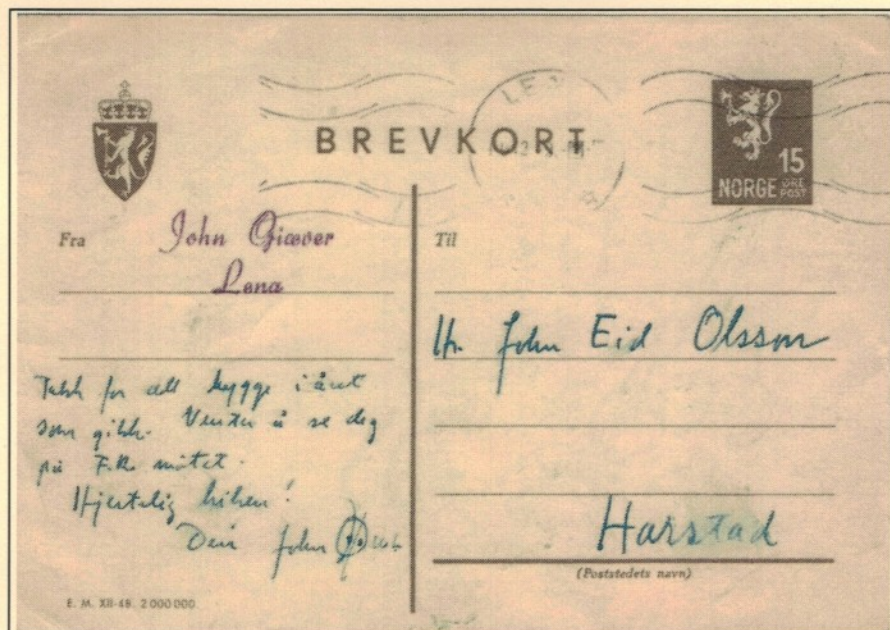 BREVKORT
15
NORGE ØRE
POST
Fra John Giæver
Lena
Takk for all hygge i året
som gikk. Venter å se deg
på møtet.
Hjertelig hilsen!
Din John
E. M. XII-48. 2 000 000.
Til
Hr. John Eid Olsson
Harstad
(Poststedets navn)